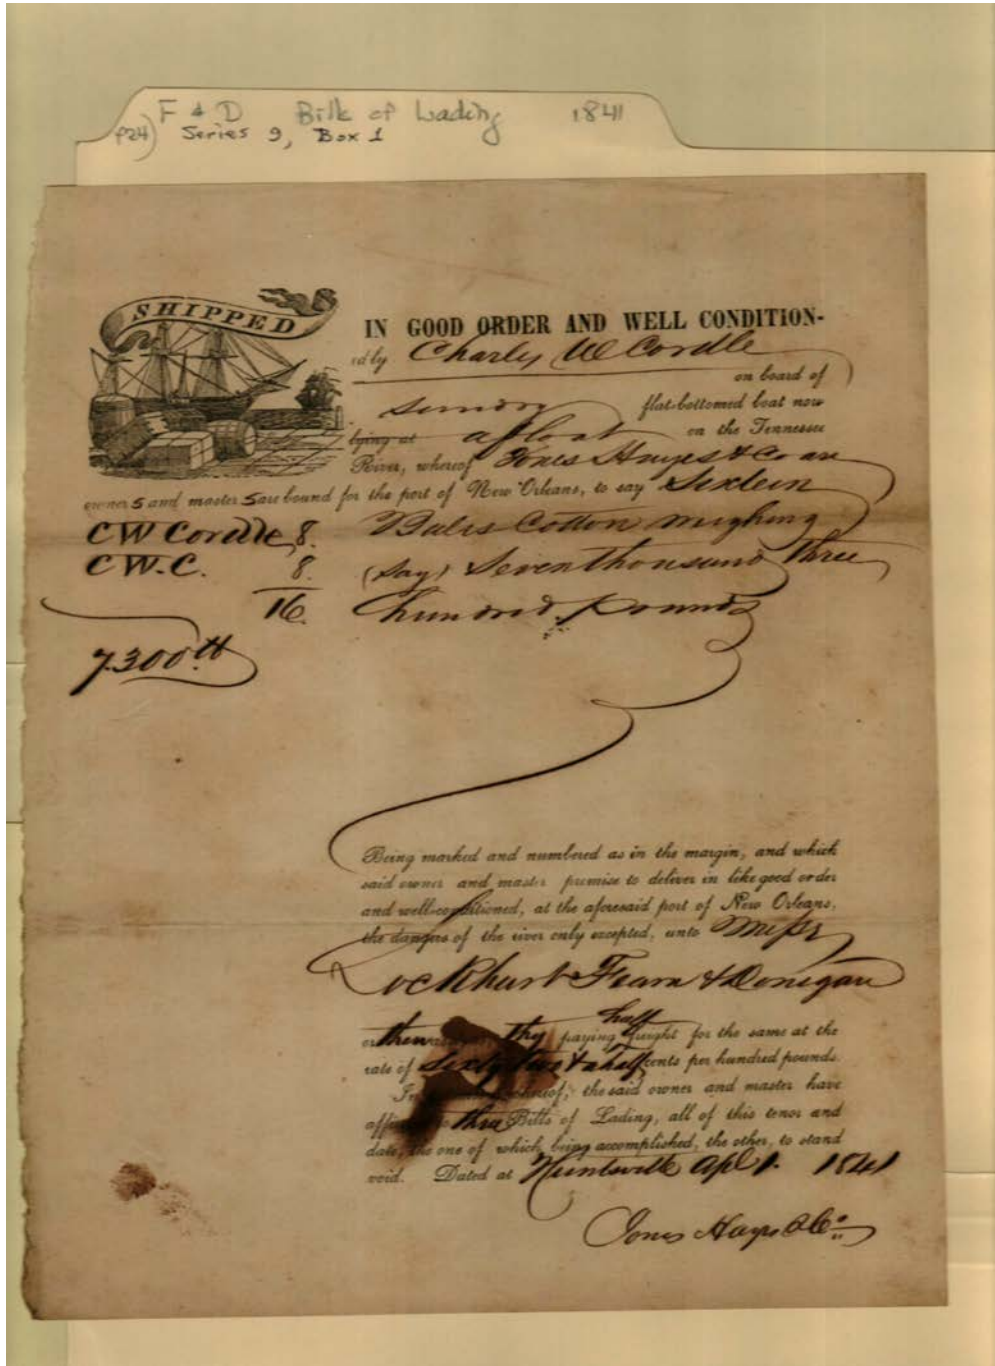 F & D Bills of Lading 1841
P24) Series 9, Box 1
SHIPPED
IN GOOD ORDER AND WELL CONDITION-
ed by Charles W Cordle
on board of
sundry flat-bottomed boat now
lying at afloat on the Tennessee
River, whereof Jones Hayes & Co are
owner s and master s are bound for the port of New Orleans, to say Sixteen
CW Cordle 8. Bales Cotton weighing
C W.C. 8. (say) Seven thousand three
16. hundred pounds
7.300 lb
Being marked and numbered as in the margin, and which
said owner and master promise to deliver in like good order
and well-conditioned, at the aforesaid port of New Orleans,
the dangers of the river only excepted, unto Messrs
Lockhart Fearn & Donegan
half
or they paying freight for the same at the
rate of Sixty two & a half cents per hundred pounds.
In whereof, the said owner and master have
three Bills of Lading, all of this tenor and
date, the one of which being accomplished, the other, to stand
void. Dated at Huntsville Apl 1. 1841
Jones Hayes & Co